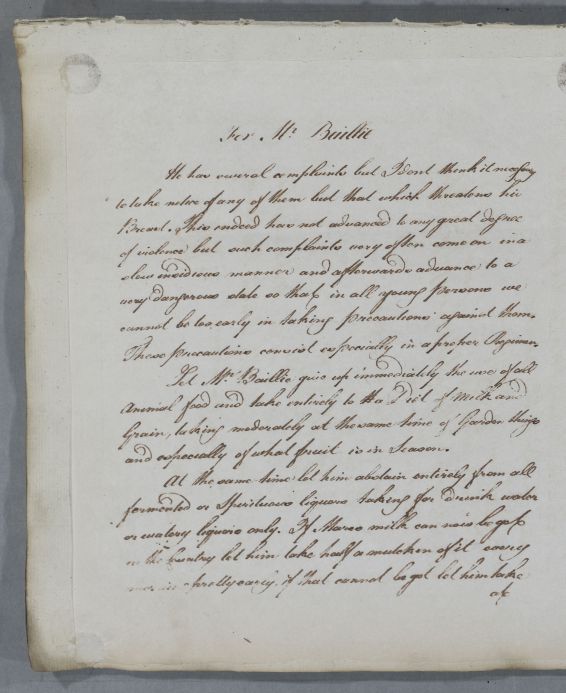 For Mr Baillie
He has several complaints but I dont think it necessary
to take notice of any of them but that which threatens his
Breast. This indeed has not advanced to any great degree
of violence but such complaints very often come on in a
slow insidious manner and afterwards advance to a
very dangerous state so that in all young persons we
cannot be too early in taking precautions against them.
These precautions consist especially in a proper Regimen.
Let Mr. Baillie give up immediately the use of all
Animal food and take entirely to the Diet of Milk and
Grain, taking moderately at the same time of Garden things
and especially of what fruit is in Season.
At the same time let him abstain entirely from all
fermented or Spirituous liquors taking for drink water
or watery liquors only. If Mares milk can now be got
in the Country let him take half a mutchken of it every
morning pretty early, if that cannot be got let him take
of